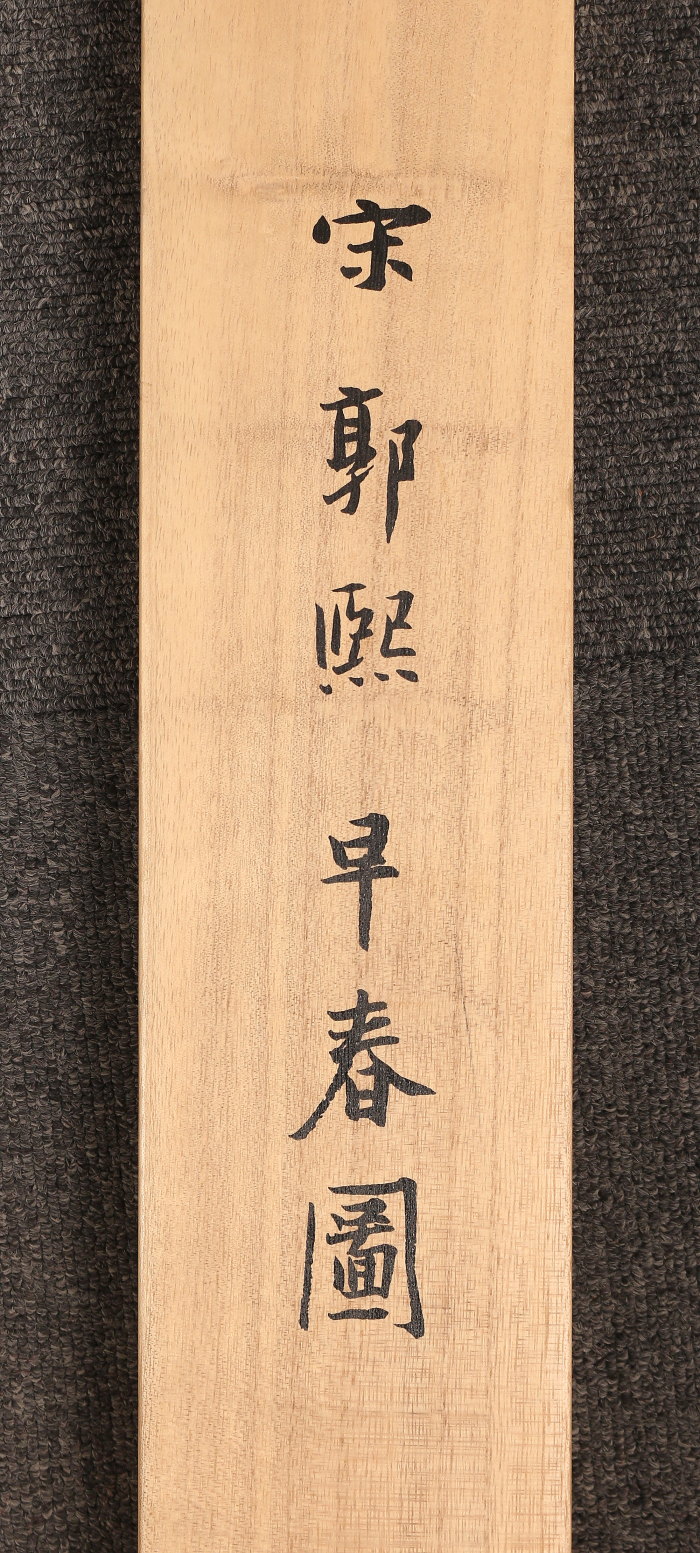 宋郭熙早春圖